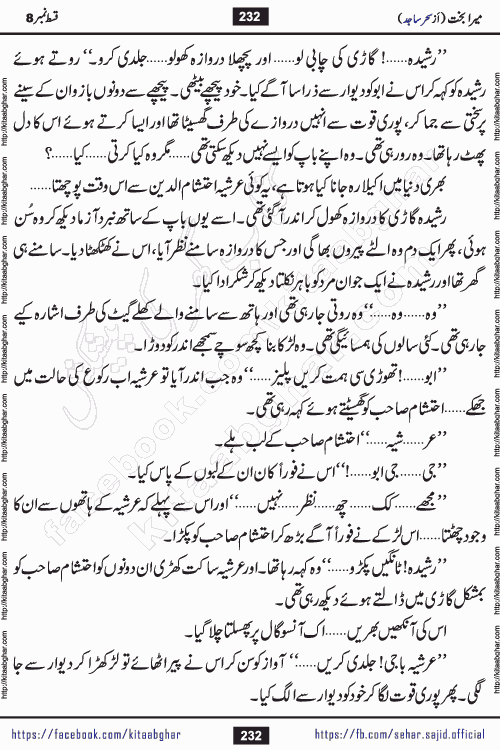 میرا بخت (از سحر ساجد) 232 قسط نمبر 8
’’رشیدہ......! گاڑی کی چابی لو...... اور پچھلا دروازہ کھولو...... جلدی کرو۔‘‘ روتے ہوئے
رشیدہ کو کہہ کر اس نے ابو کو دیوار سے ذرا سا آگے کیا۔ خود پیچھے بیٹھی۔ پیچھے سے دونوں بازو ان کے سینے
پر سختی سے جما کر، پوری قوت سے انہیں دروازے کی طرف گھسیٹا تھا اور ایسا کرتے ہوئے اس کا دل
پھٹ رہا تھا۔ وہ رو رہی تھی۔ وہ اپنے باپ کو ایسے نہیں دیکھ سکتی تھی...... مگر وہ کیا کرتی...... کیا......؟
بھری دنیا میں اکیلا رہ جانا کیا ہوتا ہے، یہ کوئی عرشیہ احتشام الدین سے اس وقت پوچھتا......
رشیدہ گاڑی کا دروازہ کھول کر اندر آ گئی تھی۔ اسے یوں باپ کے ساتھ نبرد آزما دیکھ کر وہ سُن
ہوئی، پھر ایک دم وہ الٹے پیروں بھاگی اور جس کا دروازہ سامنے نظر آیا، اس نے کھٹکھٹا دیا۔ سامنے ہی
گھر تھا اور رشیدہ نے ایک جوان مرد کو باہر نکلتا دیکھ کر شکر ادا کیا۔
’’وہ...... وہ......‘‘ وہ روتی جا رہی تھی اور ہاتھ سے سامنے والے کھلے گیٹ کی طرف اشارہ کیے
جا رہی تھی۔ کئی سالوں کی ہمسائیگی تھی۔ وہ لڑکا بنا کچھ سوچے سمجھے اندر کو دوڑا۔
’’ابو......! تھوڑی سی ہمت کریں پلیز......‘‘ وہ جب اندر آیا تو عرشیہ اب رکوع کی حالت میں
جھکے...... احتشام صاحب کو گھسیٹتے ہوئے کہہ رہی تھی۔
’’عر...... شیہ......‘‘ احتشام صاحب کے لب ہلے۔
’’جی...... جی ابو......!‘‘ اس نے فوراً کان ان کے لبوں کے پاس کیا۔
’’مجھے...... کک...... چھ...... نظر...... نہیں......‘‘ اور اس سے پہلے کہ عرشیہ کے ہاتھوں سے ان کا
وجود چھٹتا...... اس لڑکے نے فوراً آگے بڑھ کر احتشام صاحب کو پکڑا۔
’’رشیدہ! ٹانگیں پکڑو......‘‘ وہ کہہ رہا تھا۔ اور عرشیہ ساکت کھڑی ان دونوں کو احتشام صاحب کو
بمشکل گاڑی میں ڈالتے ہوئے دیکھ رہی تھی۔
اس کی آنکھیں بھریں...... اک آنسو گال پر پھسلتا چلا گیا۔
’’عرشیہ باجی! جلدی کریں......‘‘ آواز کو سن کر اس نے پیر اٹھائے تو لڑکھڑا کر دیوار سے جا
لگی۔ پھر پوری قوت لگا کر خود کو دیوار سے الگ کیا۔
https://facebook.com/kitaabghar 232 https://fb.com/sahar.sajid.official
http://kitaabghar.com http://kitaabghar.com http://kitaabghar.com http://kitaabghar.com http://kitaabghar.com